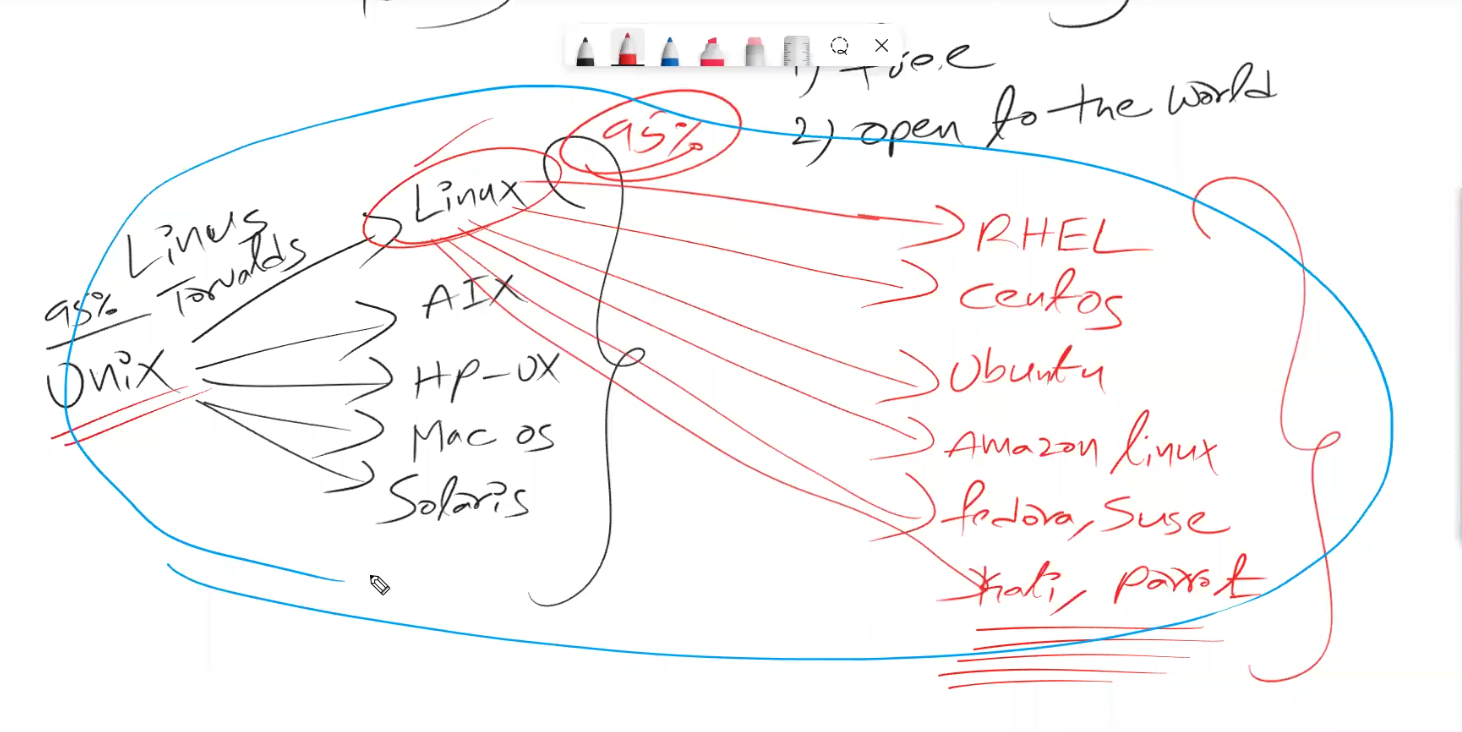 1) free
2) open to the world
95%
Linux
Linus
Torvalds
95%
Unix
AIX
HP-UX
Mac os
Solaris
RHEL
Centos
Ubuntu
Amazon linux
fedora, Suse
kali, parrot